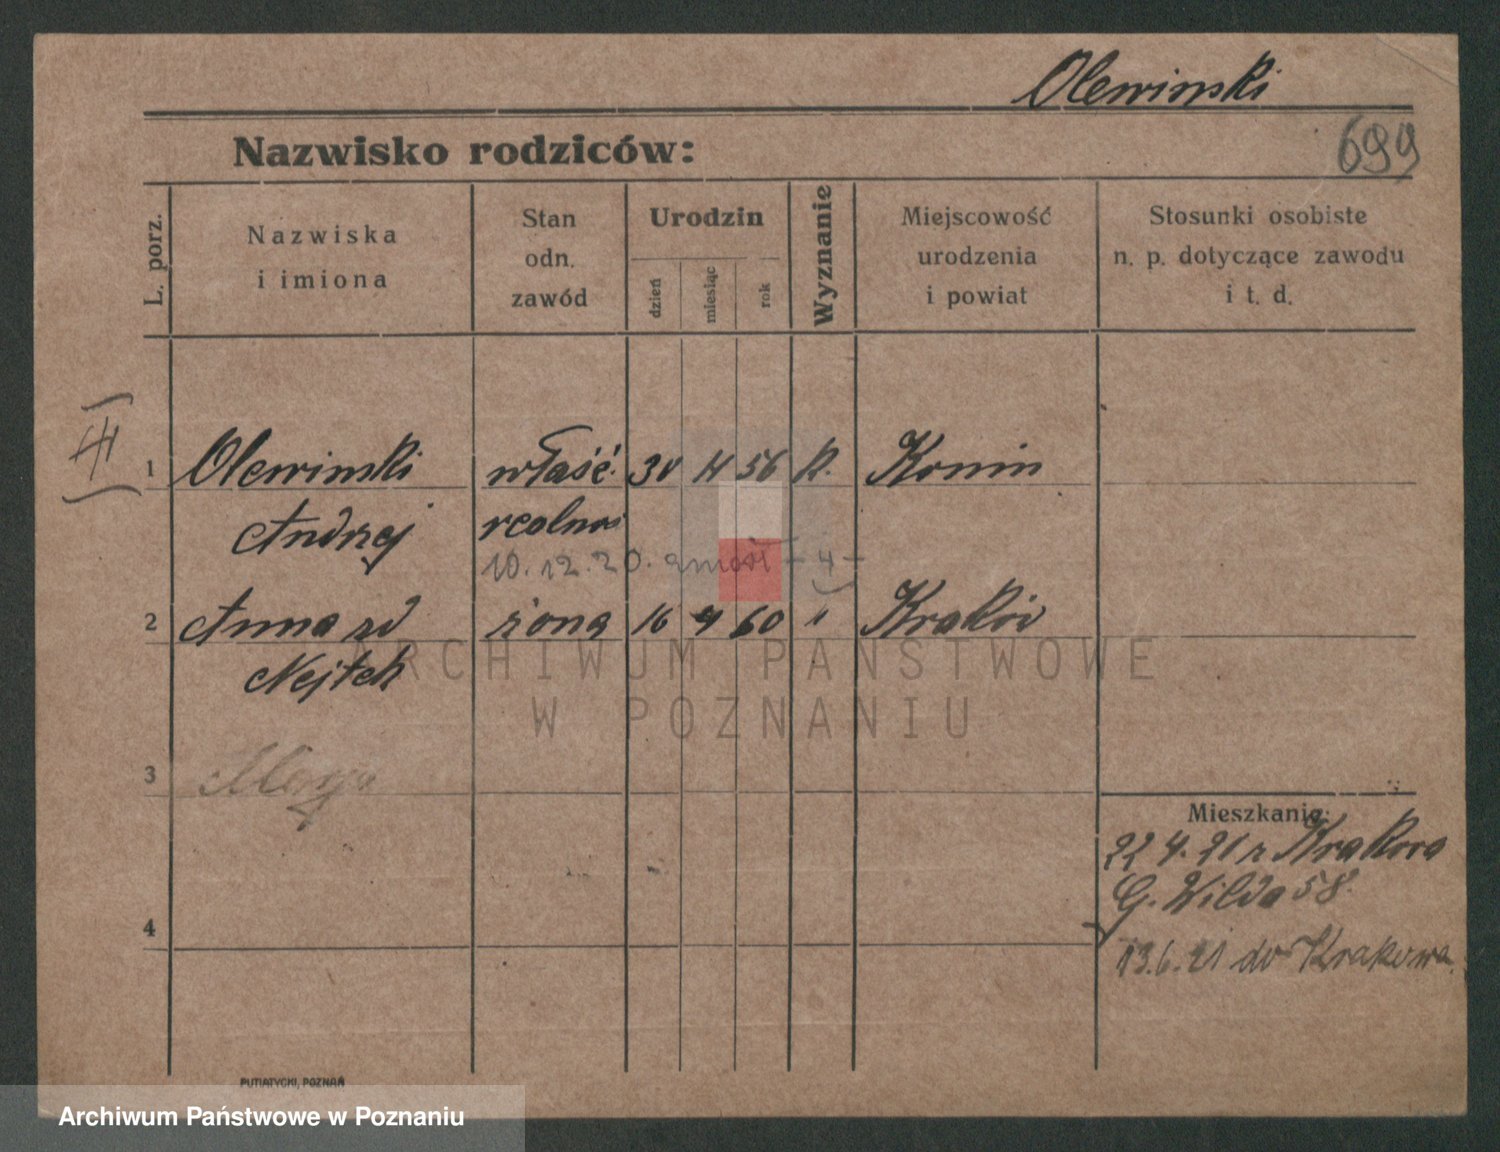 Olewinski
699
Nazwisko rodziców:
L. porz.
Nazwiska
i imiona
Stan
odn.
zawód
Urodzin
dzień
miesiąc
rok
Wyznanie
Miejscowość
urodzenia
i powiat
Stosunki osobiste
n. p. dotyczące zawodu
i t. d.
1 Olewinski właść. 30 11 56 R. Konin
Andrzej realnoś
10.12.20. zmarł
2 Anna zd żona 16 4 60 " Kraków
Nejteh
ARCHIWUM PAŃSTWOWE
W POZNANIU
3
Mieszkanie:
22 4. 21 z Krakowa
G. Wilda 58.
4
13.6.21 do Krakowa.
PUTIATYCKI, POZNAŃ
Archiwum Państwowe w Poznaniu